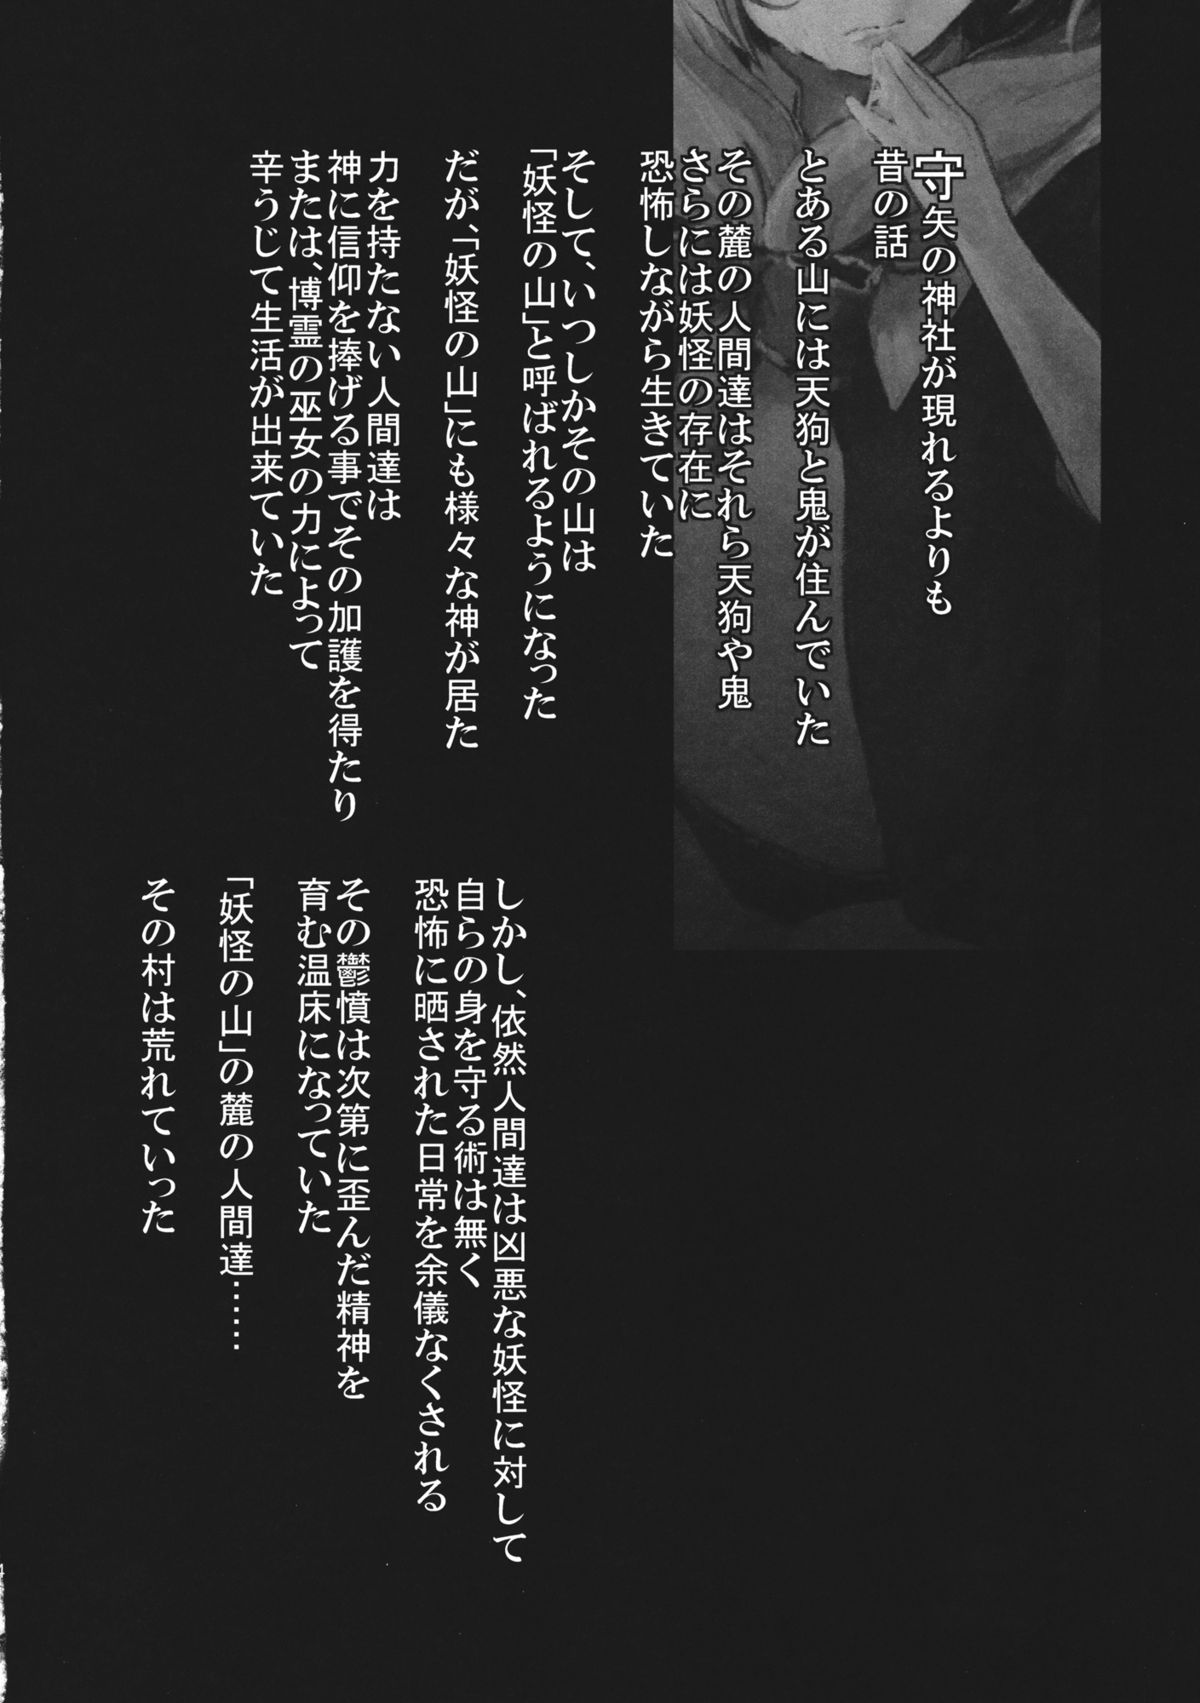 守矢の神社が現れるよりも
昔の話
とある山には天狗と鬼が住んでいた
その麓の人間達はそれら天狗や鬼
さらには妖怪の存在に
恐怖しながら生きていた
そして、いつしかその山は
「妖怪の山」と呼ばれるようになった
だが、「妖怪の山」にも様々な神が居た
力を持たない人間達は
神に信仰を捧げる事でその加護を得たり
または、博霊の巫女の力によって
辛うじて生活が出来ていた
しかし、依然人間達は凶悪な妖怪に対して
自らの身を守る術は無く
恐怖に晒された日常を余儀なくされる
その鬱憤は次第に歪んだ精神を
育む温床になっていた
「妖怪の山」の麓の人間達……
その村は荒れていった